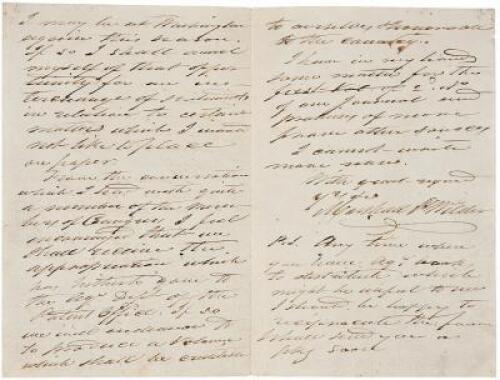 I may be at Washington
again this season.
If so I shall avail
myself of that oppor
tunity for an in
terchange of sentiments
in relation to certain
matters which I would
not like to place
on paper.
From the conversation
which I had with quite
a number of the mem
bers of Congress I feel
encouraged that we
shall receive the
appropriation which
has hitherto gone to
the Agl. Dept. of the
Patent Office. If so
we will endeavor to
to produce a volume
which shall be creditable
to ourselves & honorable
to the country.
I have in my hand
some matter for the
first of
of our Journal and
promises of more
from other sources
I cannot write
more now.
With great regard
yours
Marshall P. Wilder
P.S. Any time when
you have Agl. works
to distribute which
might be useful to me
I should be happy to
reciprocate the favor
Shall send you a
soon